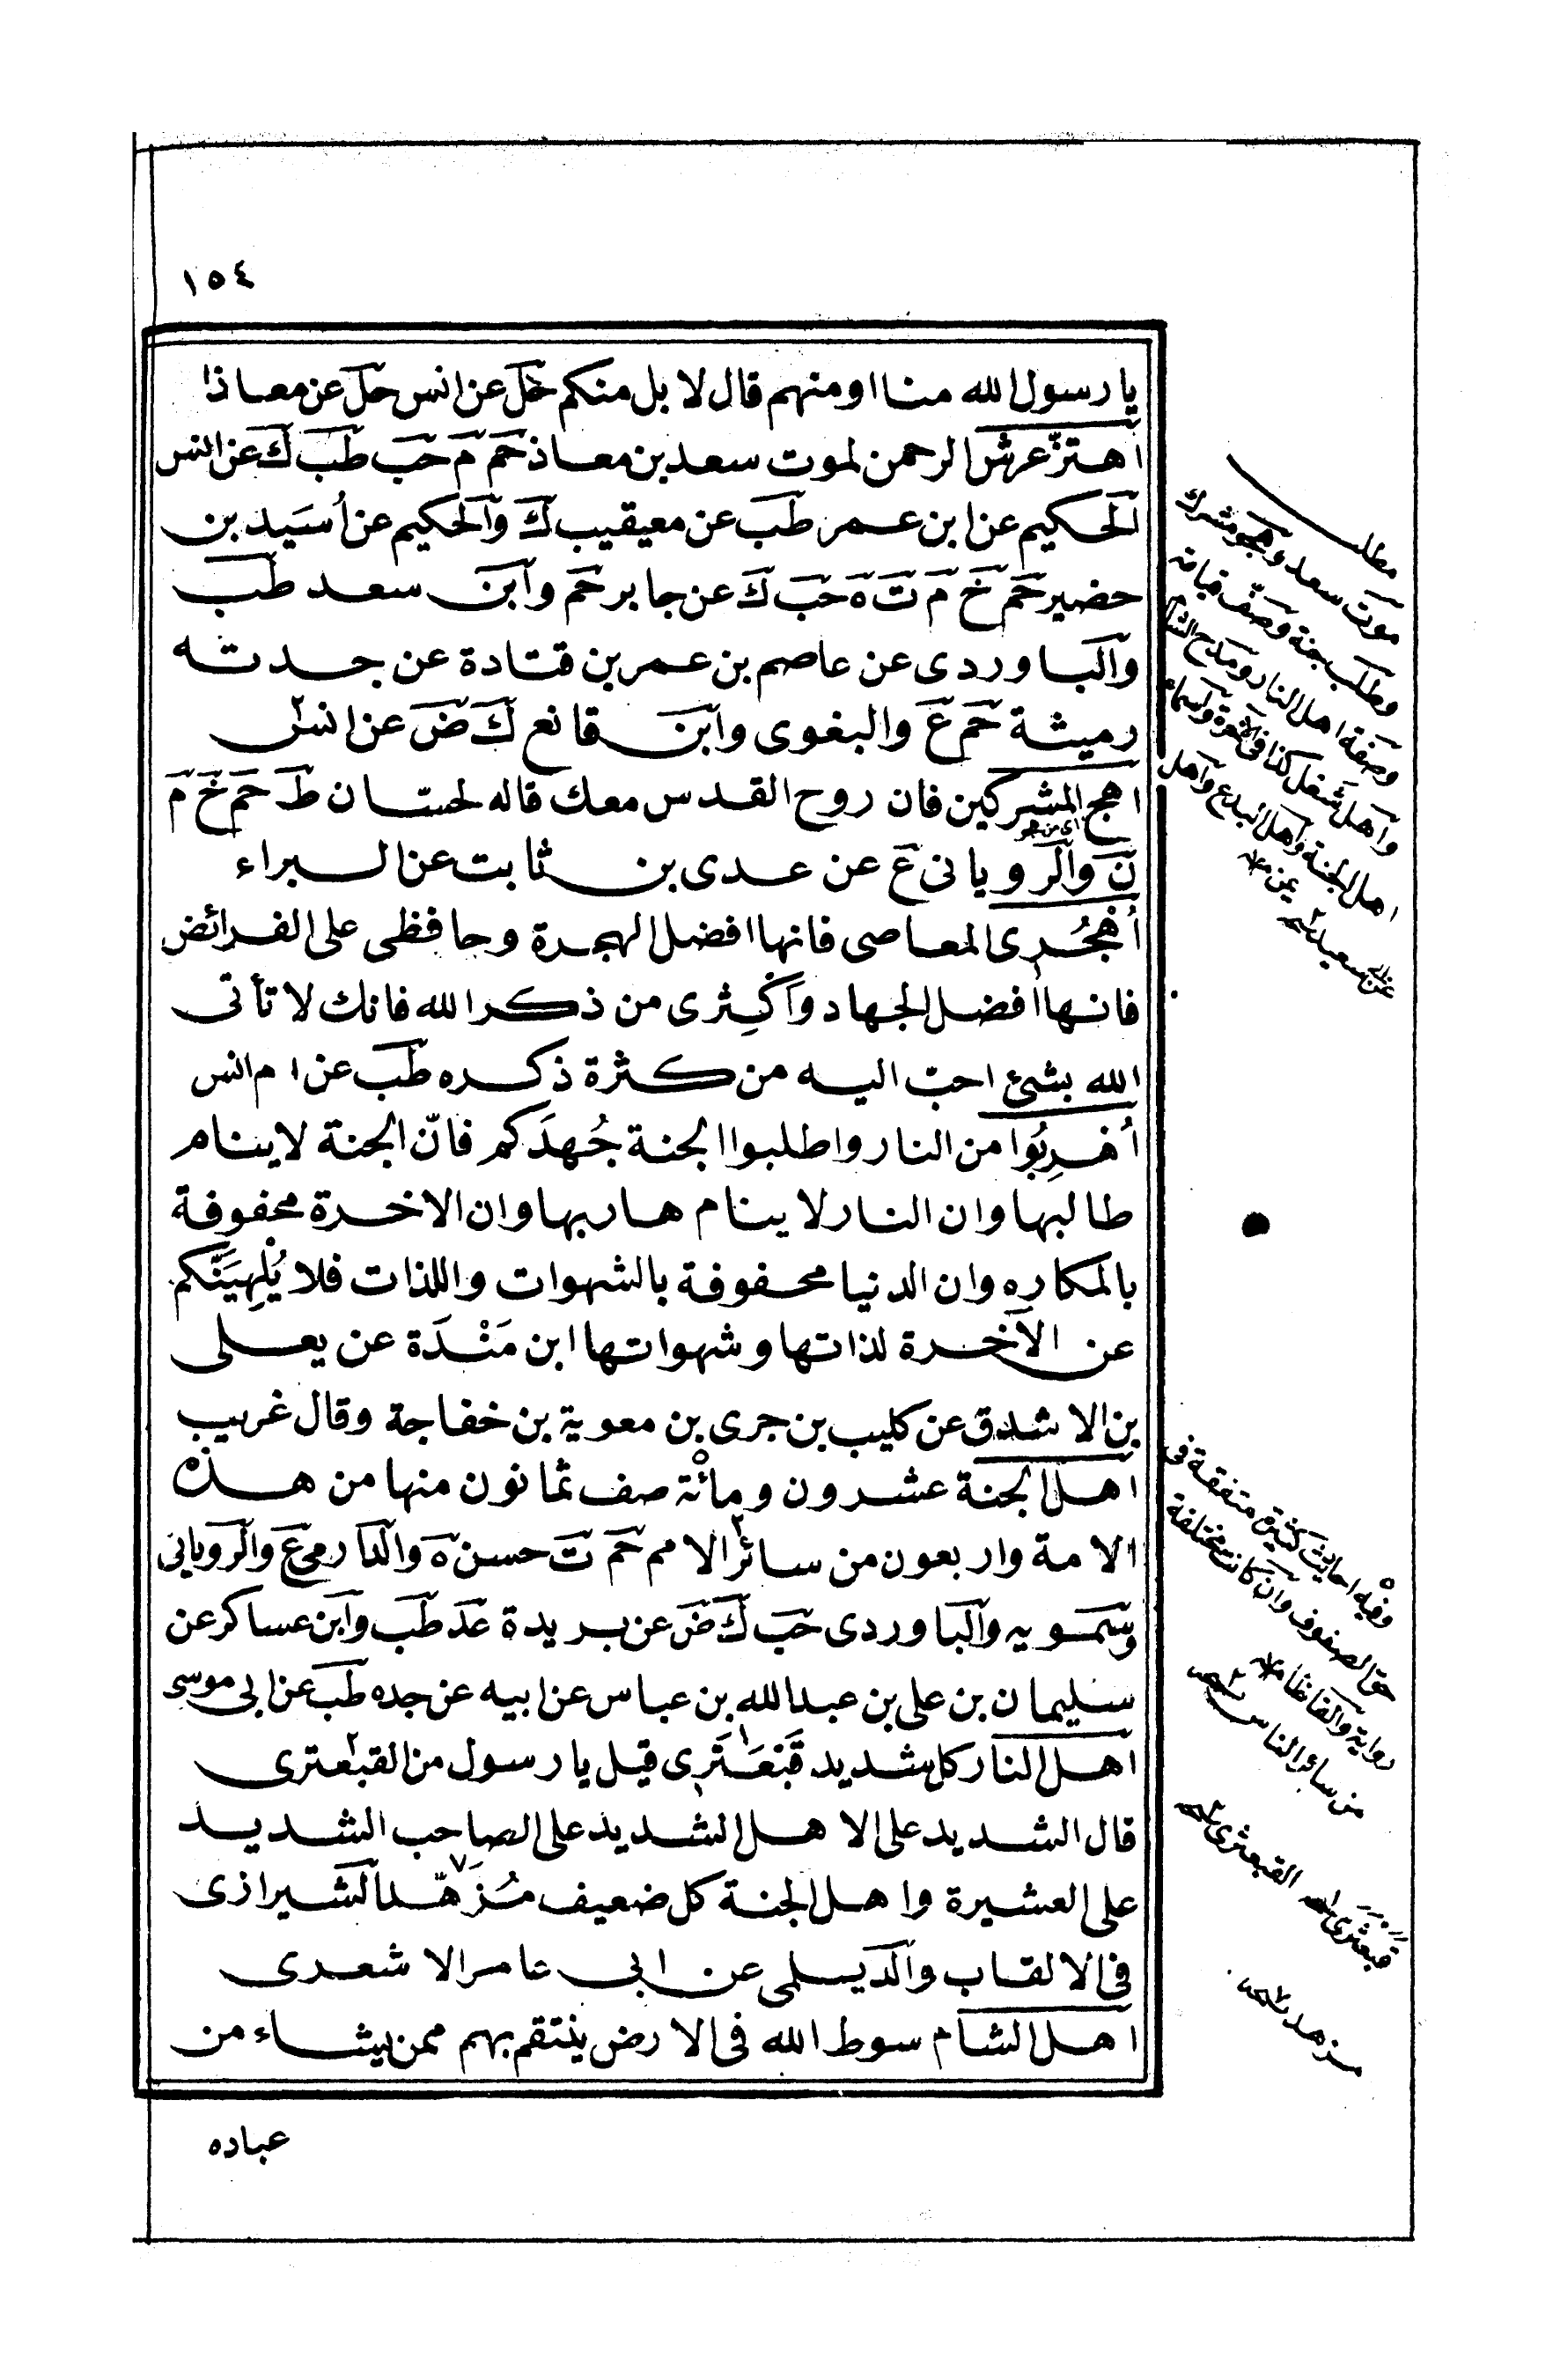 ١٥٤
يا رسول الله منا او منهم قال لا بل منكم خل عن انس حل عن معاذا
اهتز عرش الرحمن لموت سعد بن معاذ حم م حب طب ك عن انس
الحكيم عن ابن عمر طب عن معيقيب ك والحكيم عن أسَيد بن
حضير حم خ م ت ه حب ك عن جابر حم وابن سعد طب
والباوردى عن عاصم بن عمر بن قتادة عن جدته
رميثة حم ع والبغوى وابن قانع ك ض عن انس
اهج المشركين فان روح القدس معك قاله لحسان ط حم خ م
ن والرويانى ع عن عدى بن ثابت عن البراء
أهجُرى المعاصى فانها افضل الهجرة وحافظى على الفرائض
فانها افضل الجهاد واكثِرى من ذكر الله فانك لا تأتى
الله بشئ احبّ اليه من كثرة ذكره طب عن ام انس
أهربُوا من النار واطلبوا الجنة جُهدَكم فانّ الجنة لا ينام
طالبها وان النار لا ينام هاربها وان الاخرة محفوفة
بالمكاره وان الدنيا محفوفة بالشهوات واللذات فلا يُلْهِيَنَّكم
عن الآخرة لذاتها وشهواتها ابن مَنْدَة عن يعلى
بن الاشدق عن كليب بن جرى بن معوية بن خفاجة وقال غريب
اهل الجنة عشرون ومائة صف ثمانون منها من هذه
الامة واربعون من سائر الامم حم ت حسن ه والدارمى ع والرويانى
وسمويه والباوردى حب ك ض عن بريدة عد طب وابن عساكر عن
سليمان بن على بن عبد الله بن عباس عن ابيه عن جده طب عن ابى موسى
اهل النار كل شديد قَبْعَثَرى قيل يا رسول من القبعثرى
قال الشديد على الاهل الشديد على الصاحب الشديد
على العشيرة واهل الجنة كل ضعيف مُزَهّد الشيرازى
فى الالقاب والديلمى عن ابى عامر الاشعرى
اهل الشام سوط الله فى الارض ينتقم بهم ممن يشاء من
عباده
مطلب
موت سعد وهجو مشرك
وطلب جنة وصف قيامه
وصفة اهل النار ومدح الشام
واهل شغل كذا فى الآخرة واسماء
اهل الجنة واهل البدع واهل
يمن
وفيه احاديث كثيرة متفقة فى
حق الصفوف وان كانت مختلفة
رواية والفاظا
من سائر الناس
القبعثرى
قبعثرى
مزهد